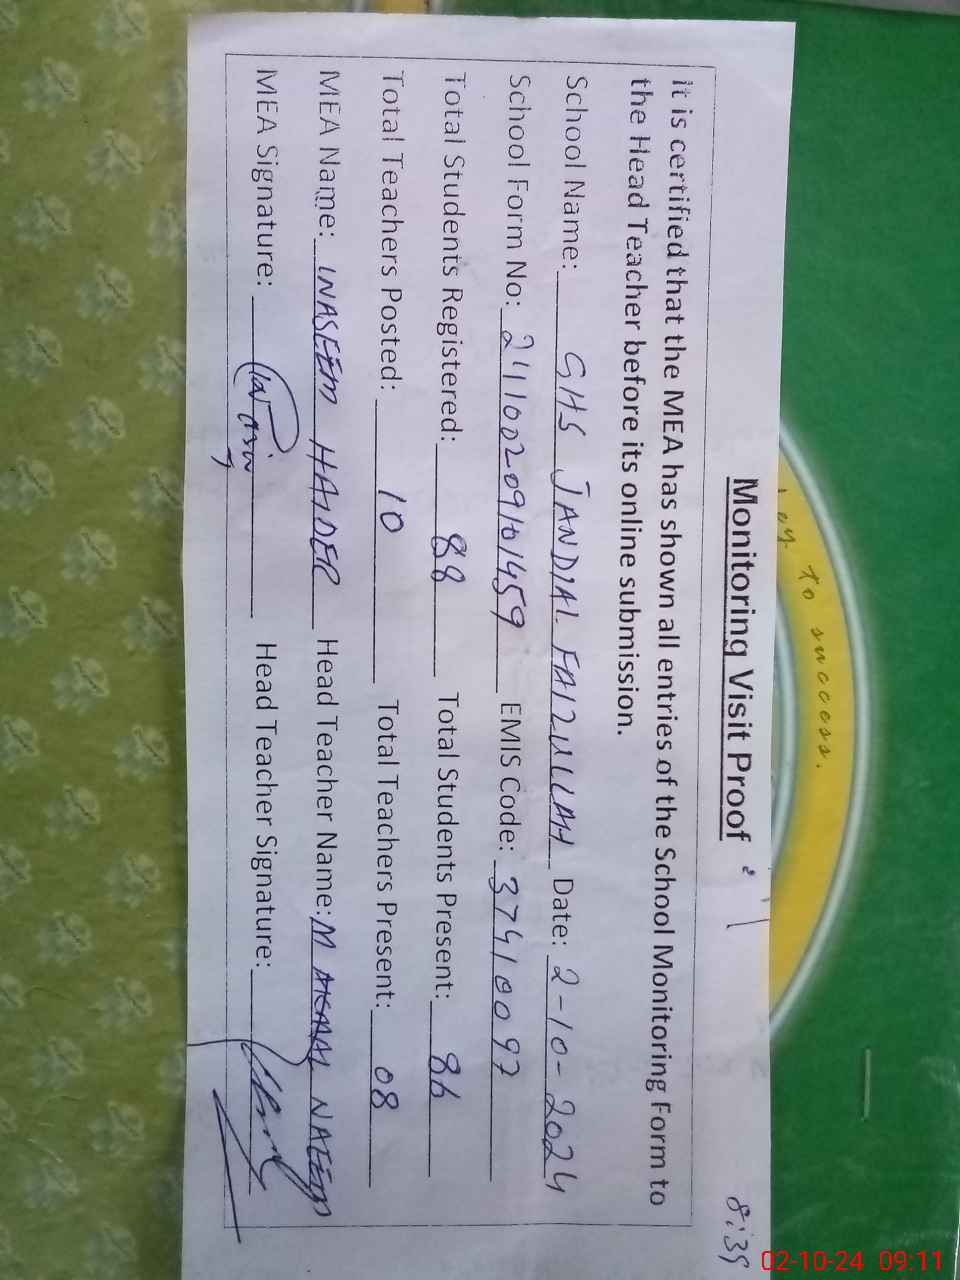 Monitoring Visit Proof
8:35
It is certified that the MEA has shown all entries of the School Monitoring Form to
the Head Teacher before its online submission.
School Name: GHS JANDIAL FAIZULLAH Date: 2-10-2024
School Form No: EMIS Code: 37410097
Total Students Registered: 88 Total Students Present: 86
Total Teachers Posted: 10 Total Teachers Present: 08
MEA Name: WASEEM HAIDER Head Teacher Name: M NAEEM
MEA Signature: Head Teacher Signature:
to success.
02-10-24 09:11